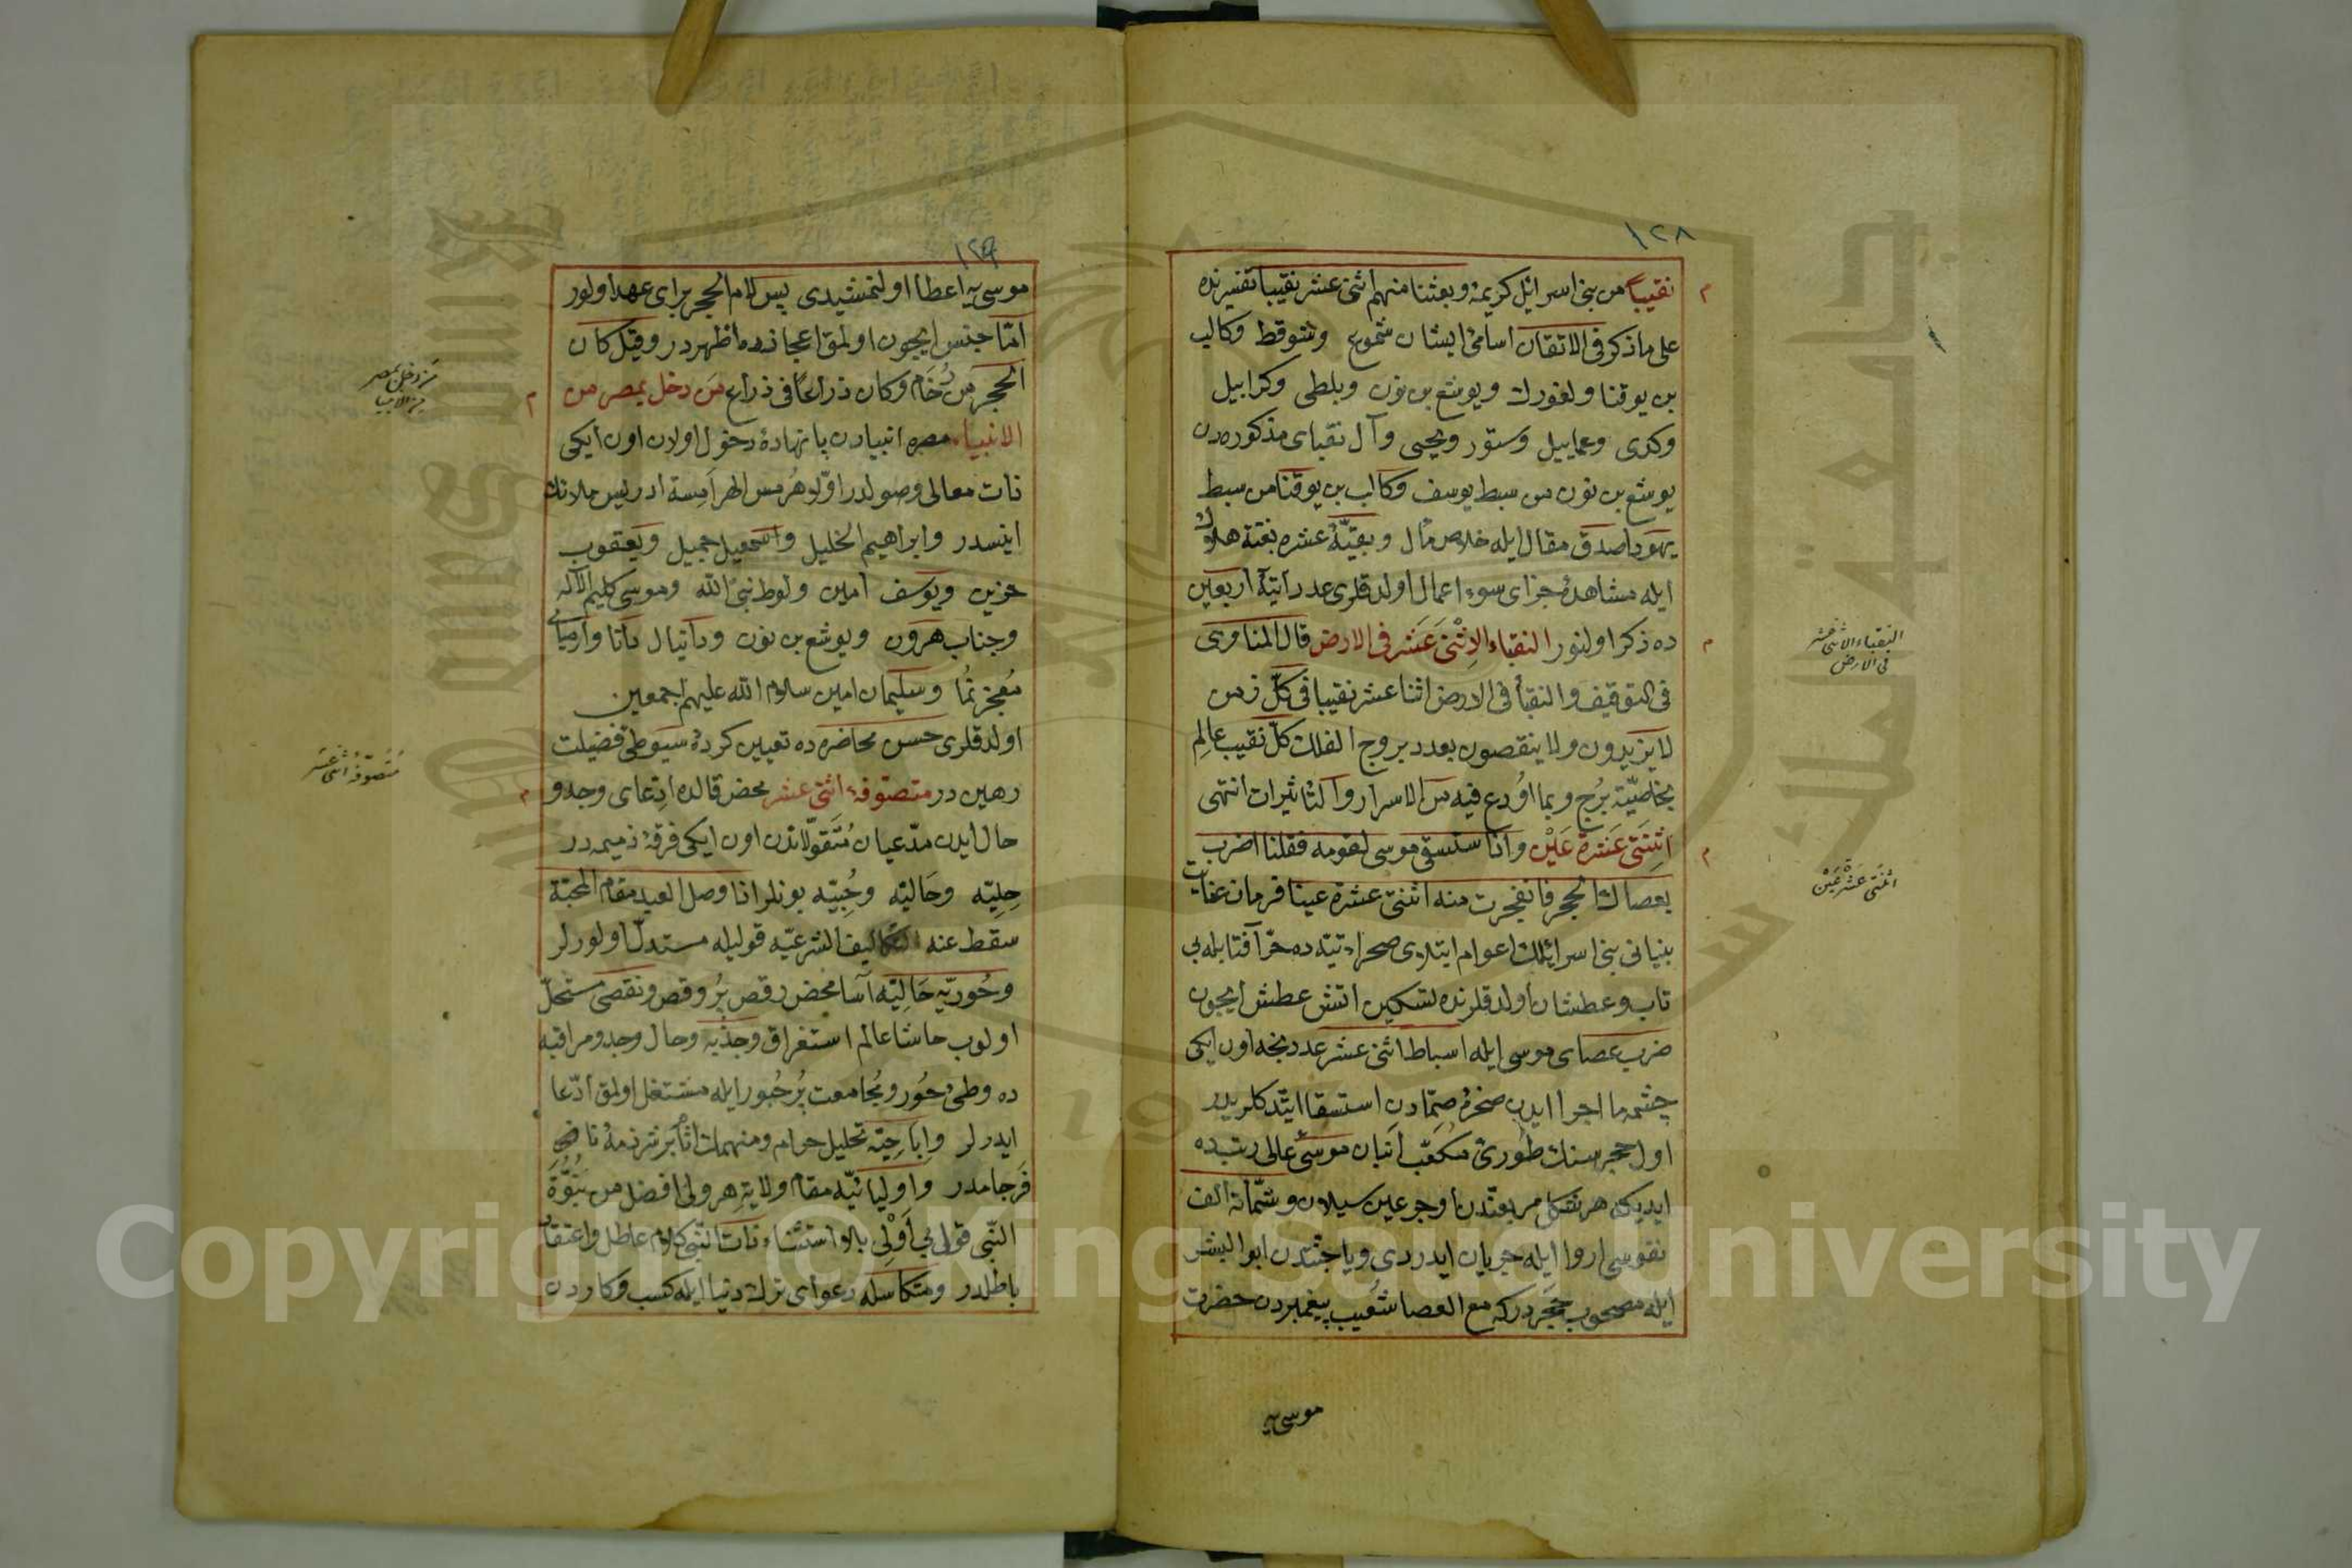 ١٢٨
نقيباً من بنى اسرائيل كريمۀ وبعثنا منهم اثنى عشر نقيبا تفسيرنده
على ما ذكر فى الاتقان اسامئ ايشان شموع وشوقط وكالب
بن يوقنا ولغورك ويوشع بن نون وبلطى وكرابيل
وكدى وعماييل وستور ويحيى وآل نقباى مذكوره دن
يوشع بن نون من سبط يوسف وكالب بن يوقنا من سبط
يهودا صدق مقال ايله خلاص مآل وبقيّۀ عشره بغتة هلاك
ايله مشاهدۀ جزاى سوء اعمال اولدقلرى عدد آتيۀ اربعين
ده ذكر اولنور النقباء الاِثْنَى عَشر فى الارض قال المناوى
فى التوقيف والنقبأ فى الارض اثنا عشر نقيبا فى كلّ زمن
لا يزيدون ولا ينقصون بعدد بروج الفلك كلّ نقيب عالِم
بخاصّيّة بُرج وبما اُودع فيه من الاسرار والتأثيرات انتهى
اثِنَتَى عَشرة عَيْن واذا ستسقى موسى لقومه فقلنا اضرب
بعصاك الحجر فانفجرت منه اثنتى عشرة عينا فرمان عنايت
بنيانى بنى اسرائيلك اعوام ابتلاى صحراء تيه ده حرّ آفتابله بى
تاب وعطشان اولدقلرنده تسكين اتش عطش ايچون
ضرب عصاى موسى ايله اسباط اثنى عشر عددنجه اون ايكى
چشمه ما اجرا ايدن صخرۀ صمّادن استسقا ايتدكلريدر
اول حجر سنك طورئ مكعّب اَتبان موسئ عالى رتبه ده
ايديكه هر شكل مربعندن اوجر عين سيلان وستّمائه الف
نفوسى اروا ايله جريان ايدردى ويا جنّتدن ابو البشر
ايله مصحوب حجردركه مع العصا شعيب پيغمبردن حضرت
موسى يه
النقباء الاثنى عشر
فى الارض
اثنتى عشرة عين
١٢٩
موسى يه اعطا اولنمشيدى پس لام الحجر براى عهد اولور
امّا جنس ايچون اولمق اعجازده اظهردر وقيل كان
الحجر من رُخام وكان ذراعًا فى ذراع من دخل بمصر من
الانبياء مصره انبيادن پانهادۀ دخول اولان اون ايكى
ذات معالى وصولدر اوّلو هُرمس الهرامِسة ادريس ملائك
انيسدر وابراهيم الخليل واسمعيل جميل ويعقوب
حزين ويوسف امين ولوط نبى الله وموسى كليم الاله
وجناب هرون ويوشع بن نون ودانيال دانا وارمياى
مُعجز نمُا وسليمان امين سلام الله عليهم اجمعين
اولدقلرى حسن محاضره ده تعيين كردۀ سيوطئ فضيلت
رهين در متصوفۀ اثنى عشر محض قالده ادّعاى وجد و
حال ايدن مدّعيان مُتَقوّلاتدن اون ايكى فرقۀ ذميمه در
حِلِيّه وحَاليّه وحُبيّه بونلر اذا وصل العبد مقام المحبّة
سقط عنه التكاليف الشرعيّه قوليله مستدلّ اولورلر
وحُوريّه حَالِيّه آسا محض رقص بُر وقص ونقصى مستحلّ
اولوب حاشا عالم استغراق وجذبه وحال وجد ومراقبه
ده وطئ حُور ومُجامعت بُر حُبور ايله مشتغل اولمق ادّعا
ايدرلر واِباحِيّه تحليل حرام ومنهمك اثام بر شرذمۀ نا
فَرجامدر واوليائيّه مقام ولايةِ هر ولى افضل من نبُوّة
النّبى قول بى اَوْلى بلا استثناء ذات النبى كلام عاطل واعتقاد
باطلدر ومتكاسله دعواى ترك دنيا ايله كسب وكاردن
من دخل بمصر
من الانبيا
متصوفۀ اثنى عشر
Copyright © King Saud University